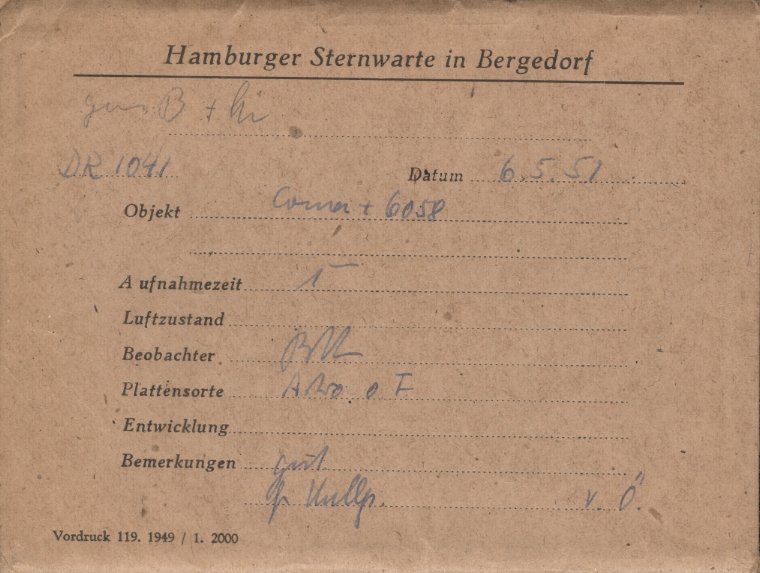 Hamburger Sternwarte in Bergedorf
DR 1041
Datum 6.5.51
Objekt Coma + 6058
Aufnahmezeit 1
Luftzustand
Beobachter
Plattensorte Astro o. F
Entwicklung
Bemerkungen gut
v. Ö.
Vordruck 119. 1949 / 1. 2000